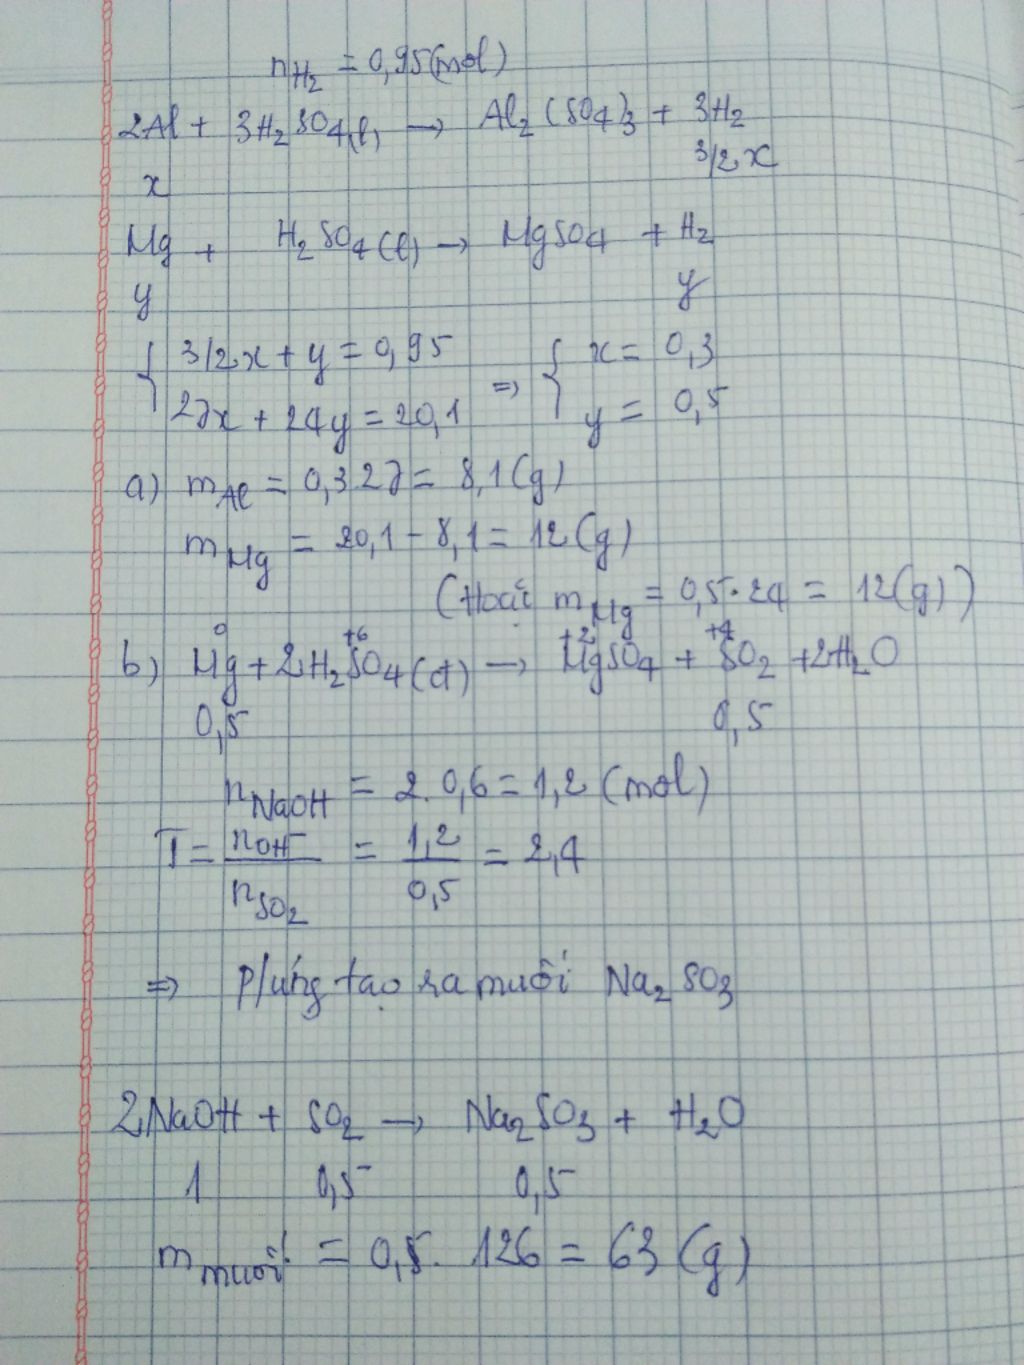 nH₂ = 0,95(mol)
2Al + 3H₂SO₄(l) → Al₂(SO₄)₃ + 3H₂
x 3/2x
Mg + H₂SO₄(l) → MgSO₄ + H₂
y y
{ 3/2x + y = 0,95 => { x = 0,3
27x + 24y = 20,1 y = 0,5
a) mAl = 0,3.27 = 8,1(g)
mMg = 20,1 - 8,1 = 12(g)
(Hoặc mMg = 0,5.24 = 12(g))
0 +6 +2 +4
b) Mg + 2H₂SO₄(đ) → MgSO₄ + SO₂ + 2H₂O
0,5 0,5
nNaOH = 2.0,6 = 1,2 (mol)
T = nOH⁻/nSO₂ = 1,2/0,5 = 2,4
=> P/ứng tạo ra muối Na₂SO₃
2NaOH + SO₂ → Na₂SO₃ + H₂O
1 0,5 0,5
mmuối = 0,5.126 = 63(g)